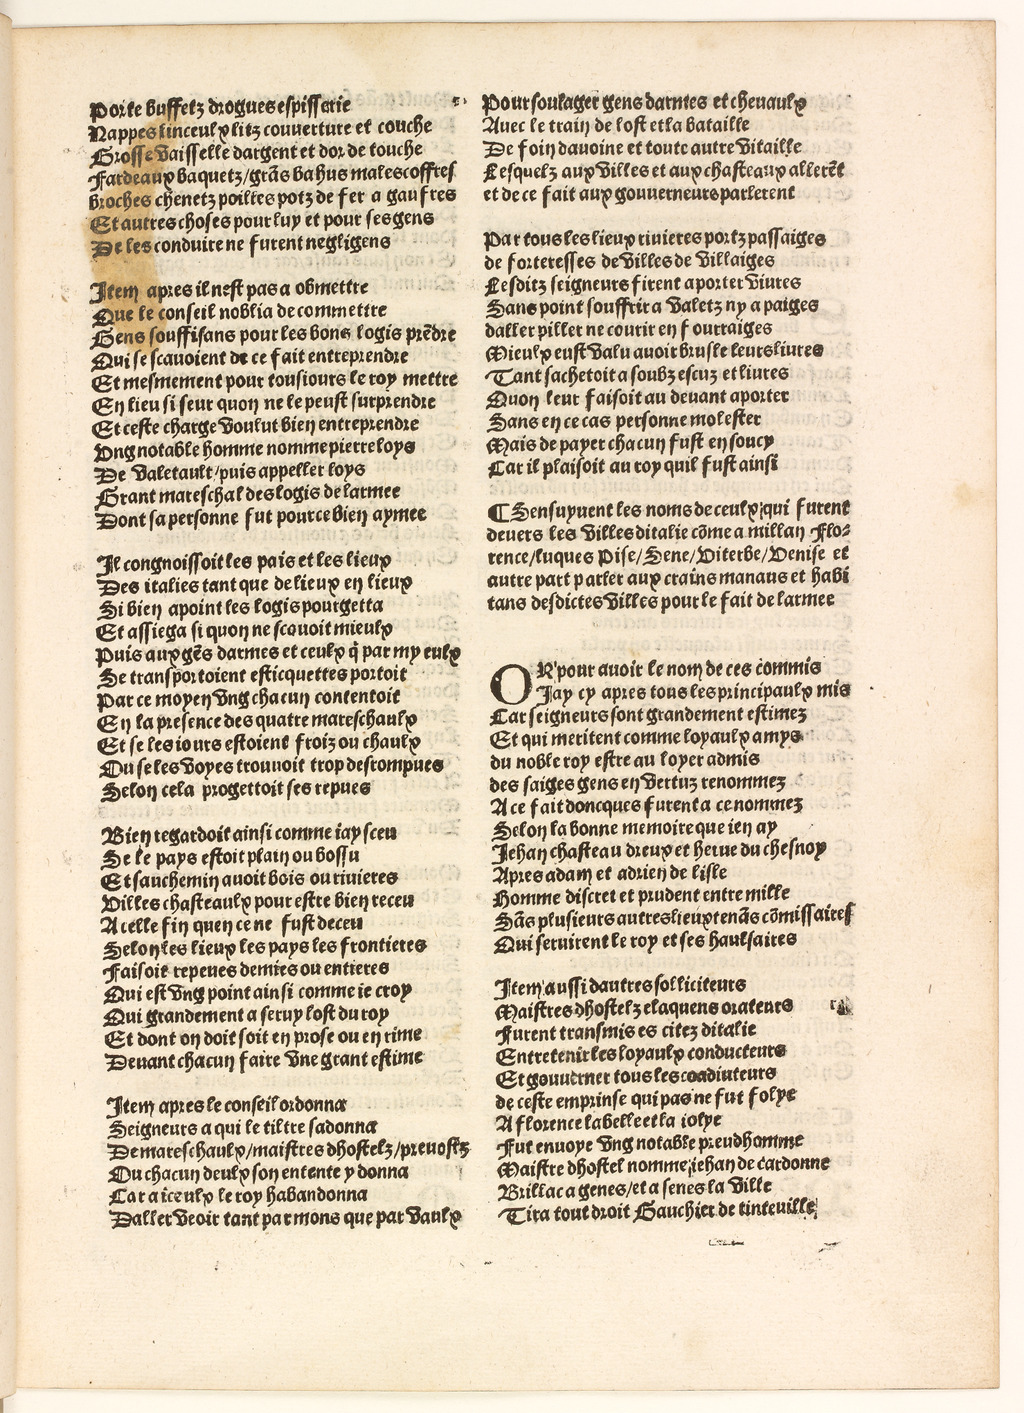 Porte buffetz drogues espisserie
Nappes linceulx litz couverture et couche
Grosse vaisselle dargent et dor de touche
Fardeaux baquetz/grãs bahus males coffres
broches chenetz poilles potz de fer a gauffres
Et autres choses pour luy et pour ses gens
De les conduire ne furent negligens

Item apres il nest pas a obmettre
Que le conseil noblia de commettre
Gens souffisans pour les bons logis prẽdre
Qui se scavoient de ce fait entreprendre
Et mesmement pour tousiours le roy mettre
En lieu si seur quon ne le peust surprendre
Et ceste charge voulut bien entreprendre
Ung notable homme nomme pierre loys
De valetault/puis appeller loys
Grant mareschal des logis de larmee
Dont sa personne fut pource bien aymee

Il congnoissoit les pais et les lieux
Des italies tant que de lieux en lieux
Si bien apoint les logis pourgetta
Et assiega si quon ne scauoit mieulx
Puis aux gẽs darmes et ceulx q̃ par my eulx
Se transportoient esticquettes portoit
Par ce moyen ung chacun contentoit
En la presence des quatre mareschaulx
Et se les iours estoient froiz ou chaulx
Ou se les voyes trouuoit trop desrompues
Selon cela progettoit ses repues

Bien regardoit ainsi comme iay sceu
Se le pays estoit plain ou bossu
Et sauchemin auoit bois ou rivieres
Villes chasteaulx pour estre bien receu
A celle fin quen ce ne fust deceu
Selon les lieux les pays les frontieres
Faisoit repeues demies ou entieres
Qui est ung point ainsi comme ie croy
Qui grandement a seruy lost du roy
Et dont on doit soit en prose ou en rime
Deuant chacun faire vne grant estime

Item apres le conseil ordonna
Seigneurs a qui le tiltre sadonna
De mareschaulx/maistres dhostelz/preuostz
Ou chacun deulx son entente y donna
Car a iceulx le roy habandonna
Daller veoir tant par mons que par vaulx

Pour soulager gens darmes et cheuaulx
Auec le train de lost et la bataille
De foin dauoine et toute autre vitaille
Lesquelz aux villes et aux chasteaux allerẽt
et de ce fait aux gouuerneurs parlerent

Par tous les lieux rivieres portz passaiges
de forteresses de villes de villaiges
Lesditz seigneurs firent aporter viures
Sans point souffrir a valetz ny a paiges
daller piller ne courir en fourraiges
Mieulx eust valu auoir brusle leurs liures
Tant sachetoit a soubz escuz et liures
Quon leur faisoit au deuant aporter
Sans en ce cas personne molester
Mais de payer chacun fust en soucy
Car il plaisoit au roy quil fust ainsi

¶ Sensuyuent les noms de ceulx qui furent
deuers les villes ditalie cõme a millan Flo-
rence/luques Pise/Sene/Viterbe/Venise et
autre part parler aux crains manans et habi
tans desdictes villes pour le fait de larmee

OR pour auoir le nom de ces commis
Jay cy apres tous les principaulx mis
Car seigneurs sont grandement estimez
Et qui meritent comme loyaulx amys
du noble roy estre au loyer admis
des saiges gens en vertuz renommez
A ce fait doncques furent a ce nommez
Selon la bonne memoire que ien ay
Jehan chasteau dreux et herue du chesnoy
Apres adam et adrien de lisle
Homme discret et prudent entre mille
Sãs plusieurs autres lieux tenãs cõmissaires
Qui seruirent le roy et ses haulsaires

Item aussi dautres solliciteurs
Maistres dhostelz elaquens orateurs
Furent transmis es citez ditalie
Entretenir les loyaulx conducteurs
Et gouuerner tous les coadiuteurs
de ceste emprinse qui pas ne fut folye
A florence la belle et la iolye
Fut enuoye ung notable preudhomme
Maistre dhostel nomme iehan de cardonne
Brillac a genes/et a senes la ville
Tira tout droit Gauchier de tinteuille